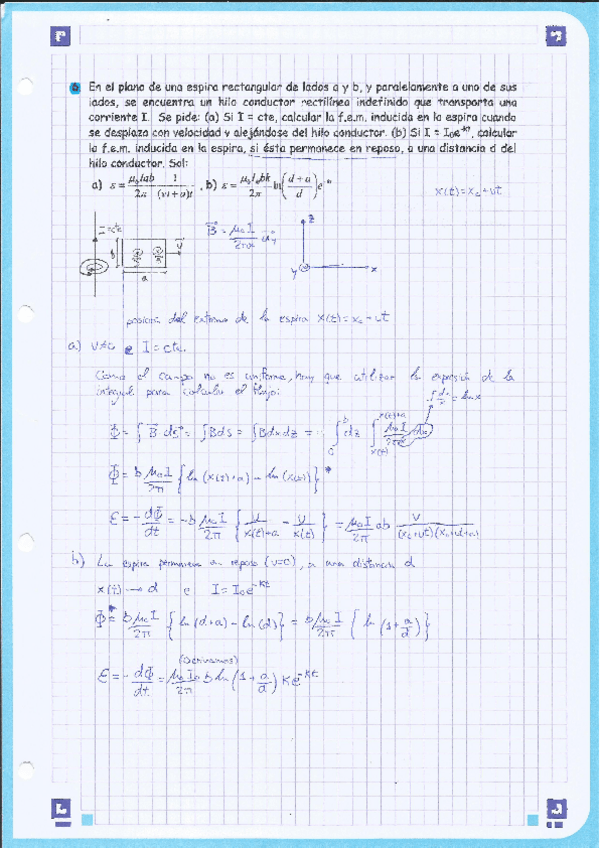 En el plano de una espira rectangular de lados a y b, y paralelamente a uno de sus
lados, se encuentra un hilo conductor rectilíneo indefinido que transporta una
corriente I. Se pide: (a) Si I = cte, calcular la f.e.m. inducida en la espira cuando
se desplaza con velocidad v alejándose del hilo conductor. (b) Si I = I₀e^-κt, calcular
la f.e.m. inducida en la espira, si ésta permanece en reposo, a una distancia d del
hilo conductor. Sol:
a) ε = μ₀Iab/2π 1/(vt + a)t , b) ε = μ₀I₀bk/2π ln((d + a)/d) e^-κt
x(t) = x₀ + vt
I = cte
B = μ₀I/2πx u_y
z
b
v
a
y
x
posición del extremo de la espira x(t) = x₀ + vt
a) v≠0 e I = cte.
Como el campo no es uniforme, hay que utilizar la expresión de la
integral para calcular el flujo:
∫dx/x = ln x
Φ = ∫ B ds = ∫BdS = ∫Bdxdz = ∫₀^b dz ∫_x(t)^x(t)+a μ₀I/2πx dx
Φ = b μ₀I/2π { ln (x(t)+a) - ln (x(t)) } *
ε = - dΦ/dt = -b μ₀I/2π { v/x(t)+a - v/x(t) } = μ₀I/2π ab v/(x₀+vt)(x₀+vt+a)
b) La espira permanece en reposo (v=0), a una distancia d
x(t) → d e I = I₀e^-Kt
Φ* = b μ₀I/2π { ln (d+a) - ln (d) } = b μ₀I/2π { ln (1 + a/d) }
(Derivamos)
ε = - dΦ/dt = μ₀I₀/2π b ln (1 + a/d) K e^-Kt